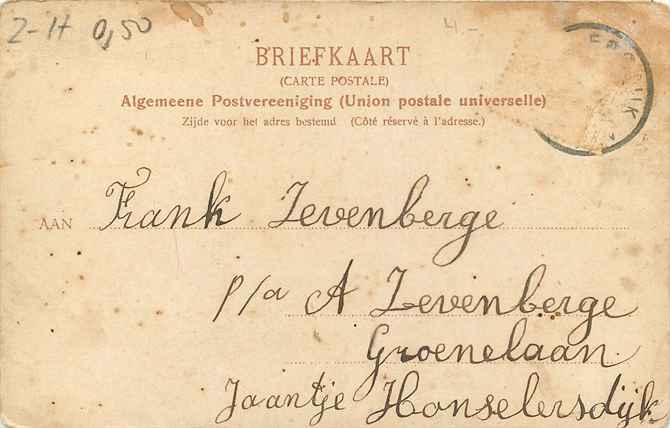 2-H 0,50
4.-
BRIEFKAART
(CARTE POSTALE)
Algemeene Postvereeniging (Union postale universelle)
Zijde voor het adres bestemd (Côté réservé à l'adresse.)
AAN Frank Zevenberge
p/a A Zevenberge
Groenelaan.
Jaantje Honselersdijk